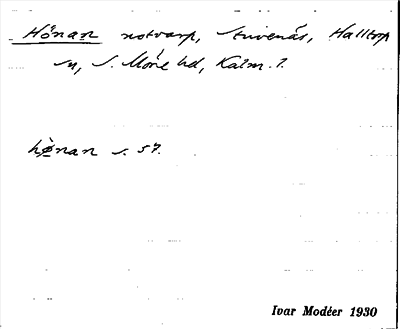 Hönan notvarp, Stuvenäs, Halltorp
sn, S. Möre hd, Kalm. l.
hönan s. 57.
Ivar Modéer 1930